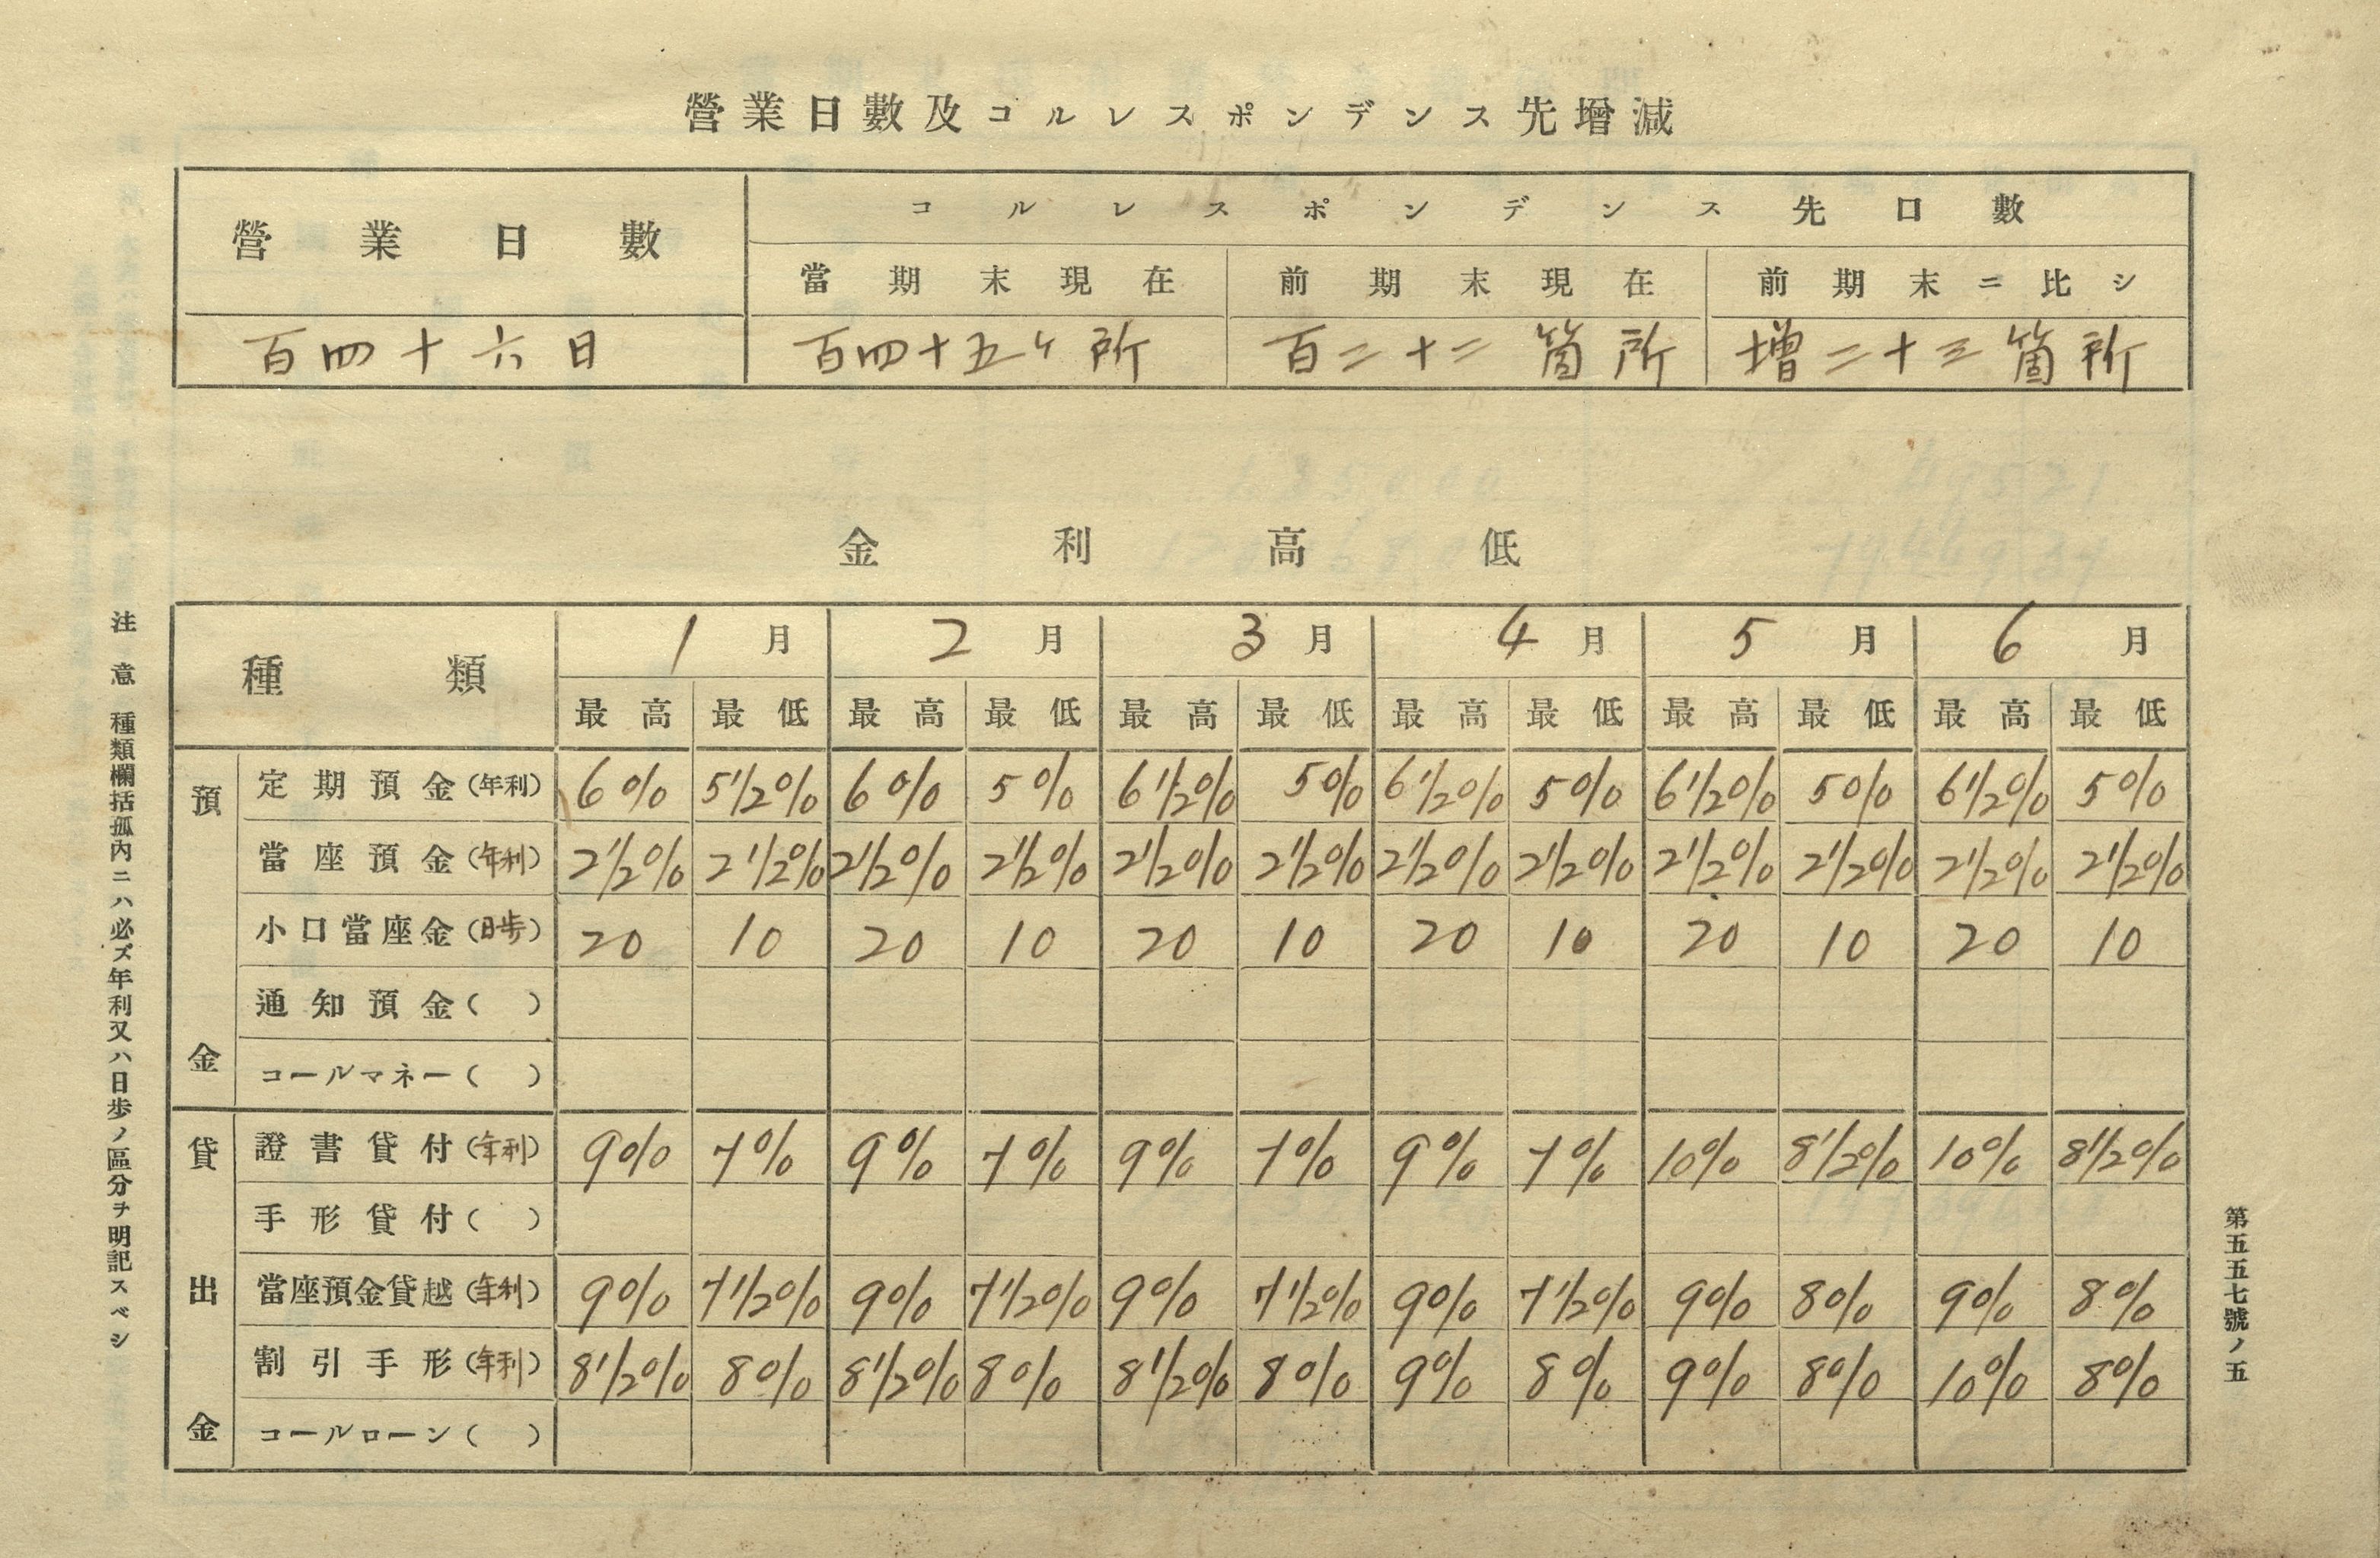 營業日數及コルレスポンデンス先增減
營業日數 コルレスポンデンス先口數
當期末現在 前期末現在 前期末ニ比シ
百四十六日 百四十五ケ所 百二十二箇所 増二十三箇所
金利高低
種類 1月 2月 3月 4月 5月 6月
最高 最低 最高 最低 最高 最低 最高 最低 最高 最低 最高 最低
預金
定期預金(年利) 6% 5 1/2% 6% 5% 6 1/2% 5% 6 1/2% 5% 6 1/2% 5% 6 1/2% 5%
當座預金(年利) 2 1/2% 2 1/2% 2 1/2% 2 1/2% 2 1/2% 2 1/2% 2 1/2% 2 1/2% 2 1/2% 2 1/2% 2 1/2% 2 1/2%
小口當座金(日歩) 20 10 20 10 20 10 20 10 20 10 20 10
通知預金( )
コールマネー( )
貸出金
證書貸付(年利) 9% 7% 9% 7% 9% 7% 9% 7% 10% 8 1/2% 10% 8 1/2%
手形貸付( )
當座預金貸越(年利) 9% 7 1/2% 9% 7 1/2% 9% 7 1/2% 9% 7 1/2% 9% 8% 9% 8%
割引手形(年利) 8 1/2% 8% 8 1/2% 8% 8 1/2% 8% 9% 8% 9% 8% 10% 8%
コールローン( )
注意 種類欄括孤內ニハ必ズ年利又ハ日歩ノ區分ヲ明記スベシ
第五五七號ノ五